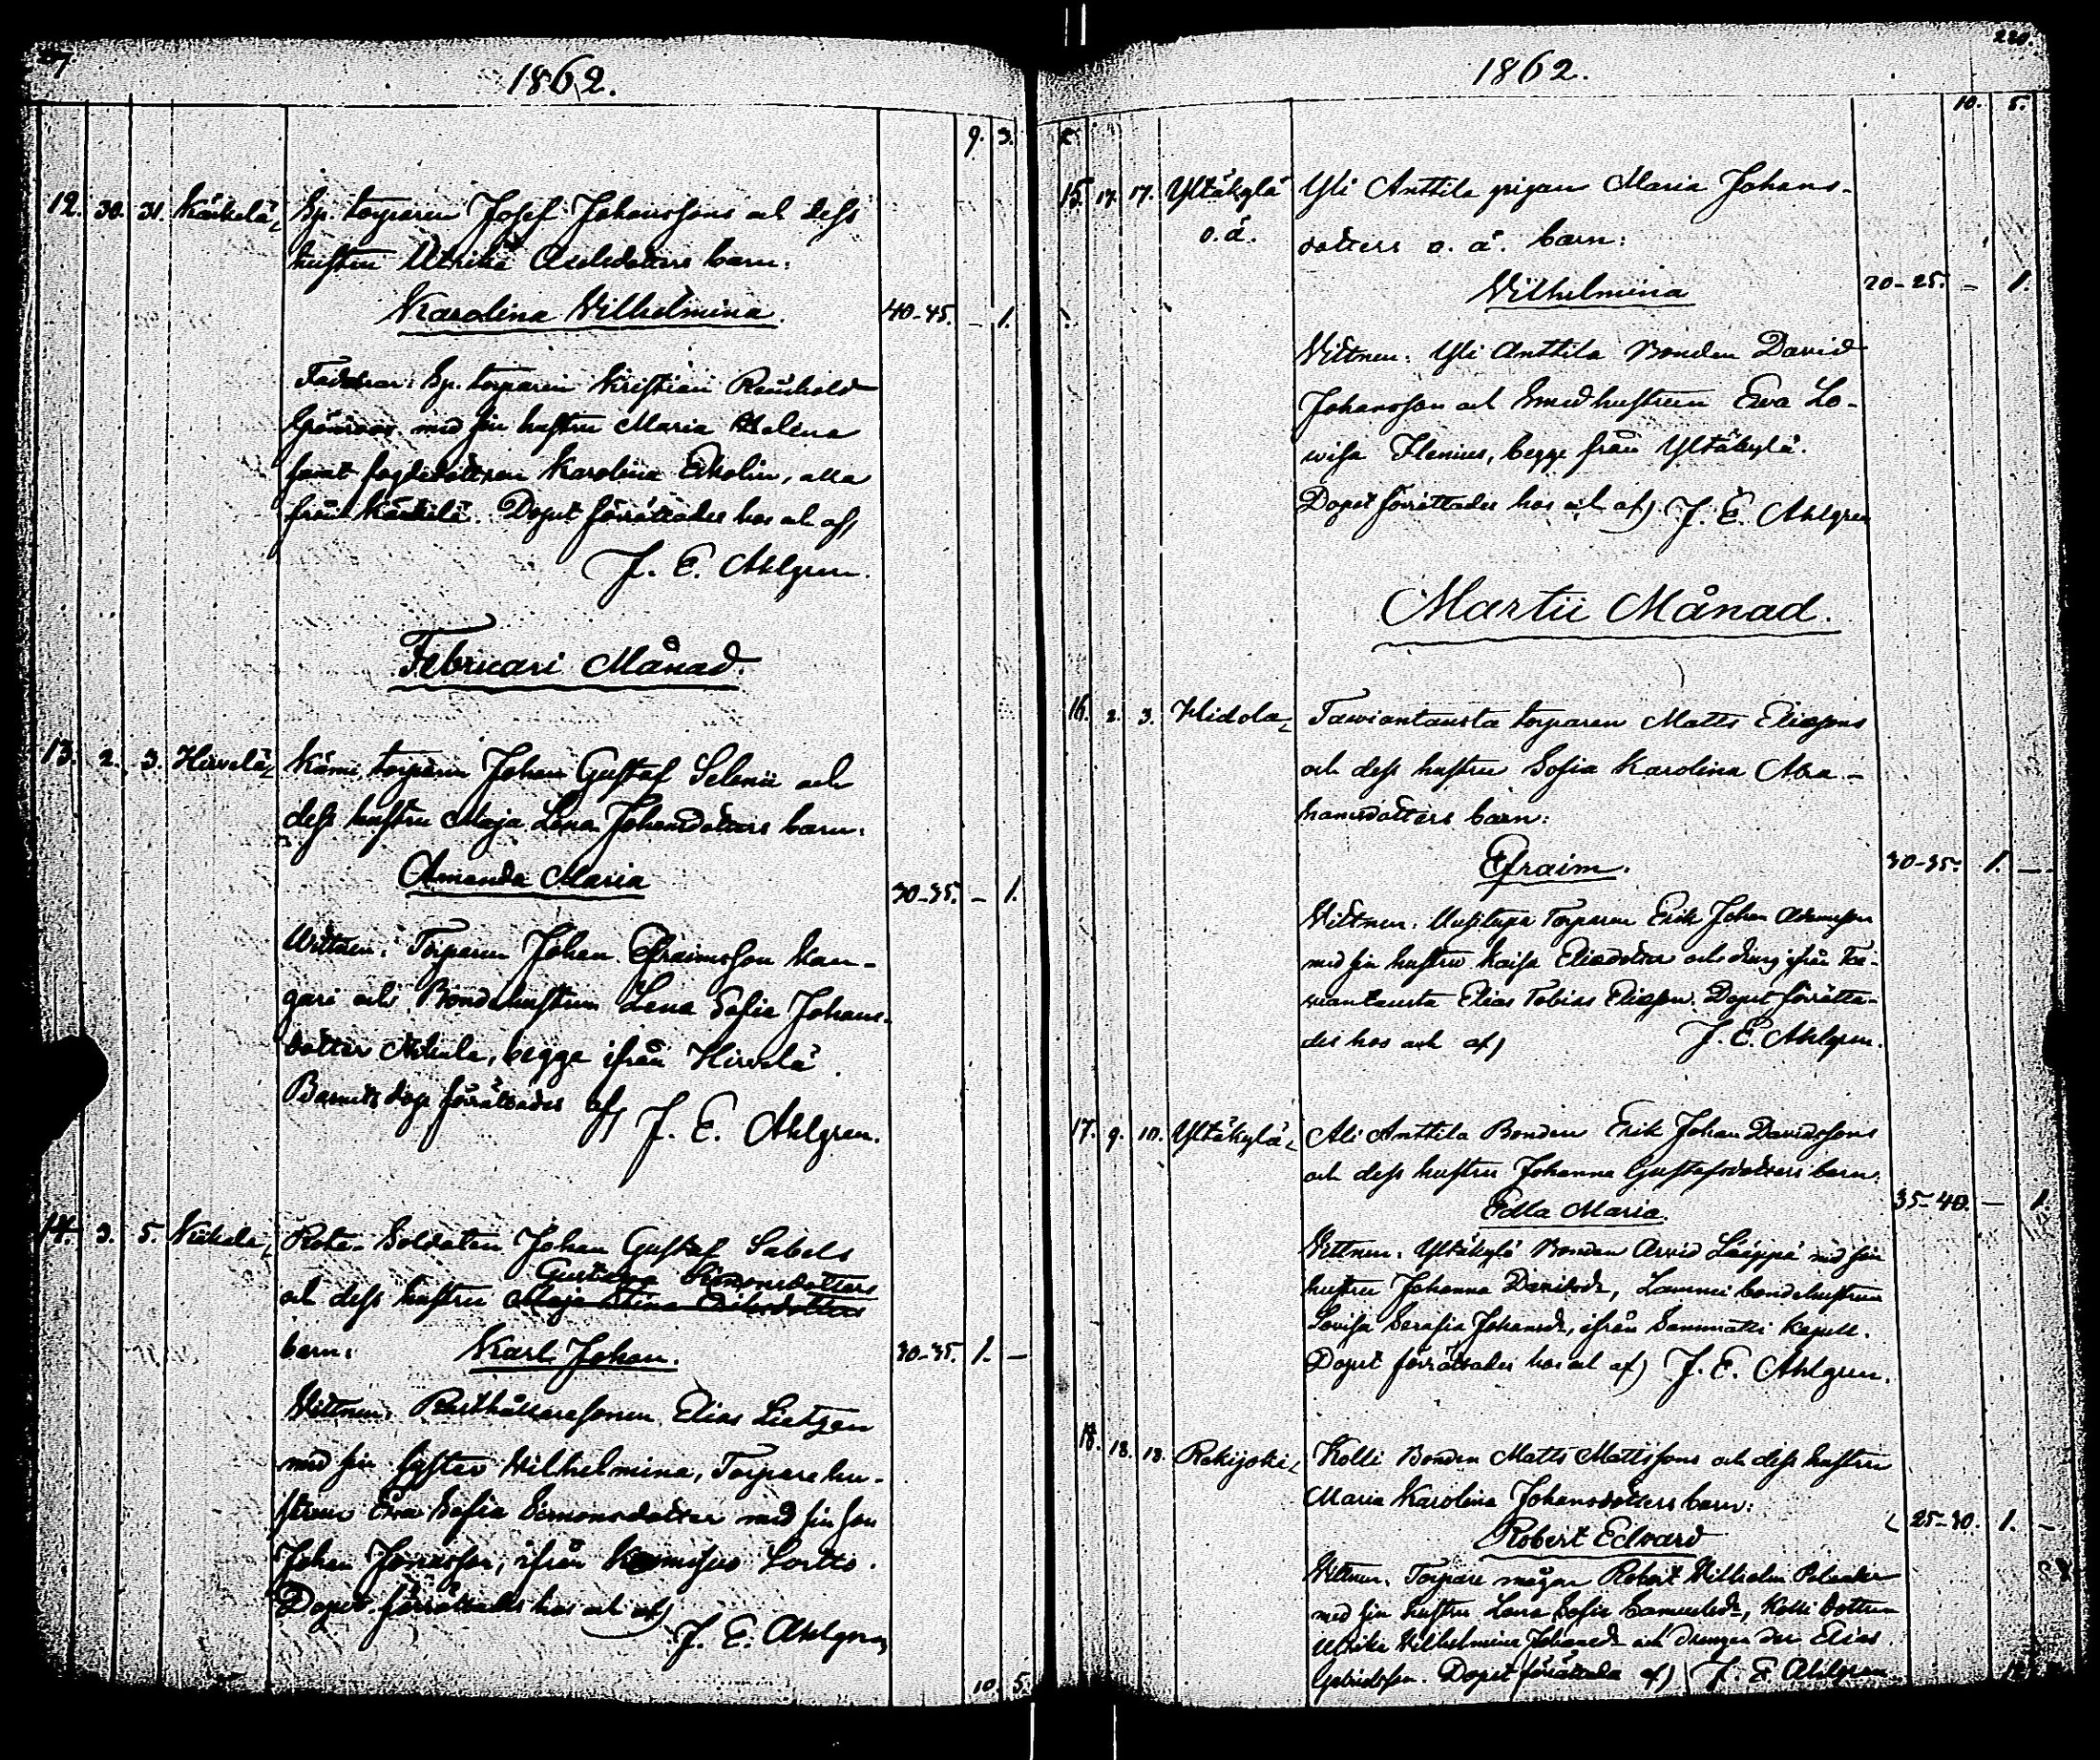 1862.
9. 3.
12. 30. 31. Kärkelä, Sp. torparen Josef Johanssons och dess
hustru Ulrika Axelsdotters barn:
Karolina Wilhelmina. 40-45. – 1.
Faddrar: Sp. torparen Kristian Reinhold
Grönroos med sin hustru Maria Helena
samt fogdedottren Karolina Edholm, alla
från Kärkelä. Dopet förrättades hos och af
J. E. Ahlgren.
Februari Månad.
13. 2. 3. Hirvelä, torparen Johan Gustaf Selenii och
dess hustru Maja Lena Johansdotters barn:
Amanda Maria 30-35. – 1.
Wittnen: Torparen Johan Efraimsson Kan-
gari och Bondehustrun Lena Sofia Johans-
dotter Mikula, begge ifrån Hirvelä.
Barnets dop förrättades af J. E. Ahlgren.
14. 3. 5. Rote-Soldaten Johan Gustaf Sabels
Gustava Simonsdotters
och dess hustru Maja Stina Eriksdotters
barn: Karl Johan. 30-35. 1. –
Wittnen: Elias Lietzen
med sin syster Wilhelmina, Torparehu-
strun Eva Sofia Simonsdotter med sin son
Johan Jonasson, ifrån
Dopet förrättades hos och af)
J. E. Ahlgren
10. 5.
1862.
220.
10. 5.
15. 17. 17. Yltäkylä Yli Anttila pigan Maria Johans-
o. ä. dotters o. ä. barn:
Wilhelmina 20-25. – 1.
Wittnen: Yli Anttila Bonden David
Johansson och Smedhustrun Eva Lo-
wisa Flenius, begge från Yltäkylä.
Dopet förrättades hos och af) J. E. Ahlgren
Martii Månad.
16. 2. 3. Hidola, Tawiantausta torparen Matts Eliassons
och dess hustru Sofia Karolina Abra-
hamsdotters barn:
Efraim. 30-35. 1. –
Wittnen: Uusitupa Torparen Erik Johan Adamsson
med sin hustru Kaisa Eliædotter och dräng ifrån Ta-
wiantausta Elias Tobias Eliasson. Dopet förrätta-
des hos och af) J. E. Ahlgren.
17. 9. 10. Yltäkylä, Ali Anttila Bonden Erik Johan Davidssons
och dess hustru Johanna Gustafsdotters barn:
Edla Maria. 35-40. – 1.
Wittnen: Yltäkylä Bonden Arvid Läippä med sin
hustru Johanna Davidsdr, Lammi bondehustrun
Lovisa Serafia Johansdr, ifrån Sammatti Kapell.
Dopet förrättades hos och af) J. E. Ahlgren.
18. 18. 18. Rekijoki, Kolli Bonden Matts Mattssons och dess hustru
Maria Karolina Johansdotters barn:
Robert Edvard 25-30. 1. –
Wittnen: Torpare mågen Robert Wilhelm
med sin hustru Lena Sofia Samuelsdr, Kolli dottren
Ulrika Wilhelmina Johansdr och drengen der Elias
Gabrielsson. Dopet förrättade af) J. E. Ahlgren